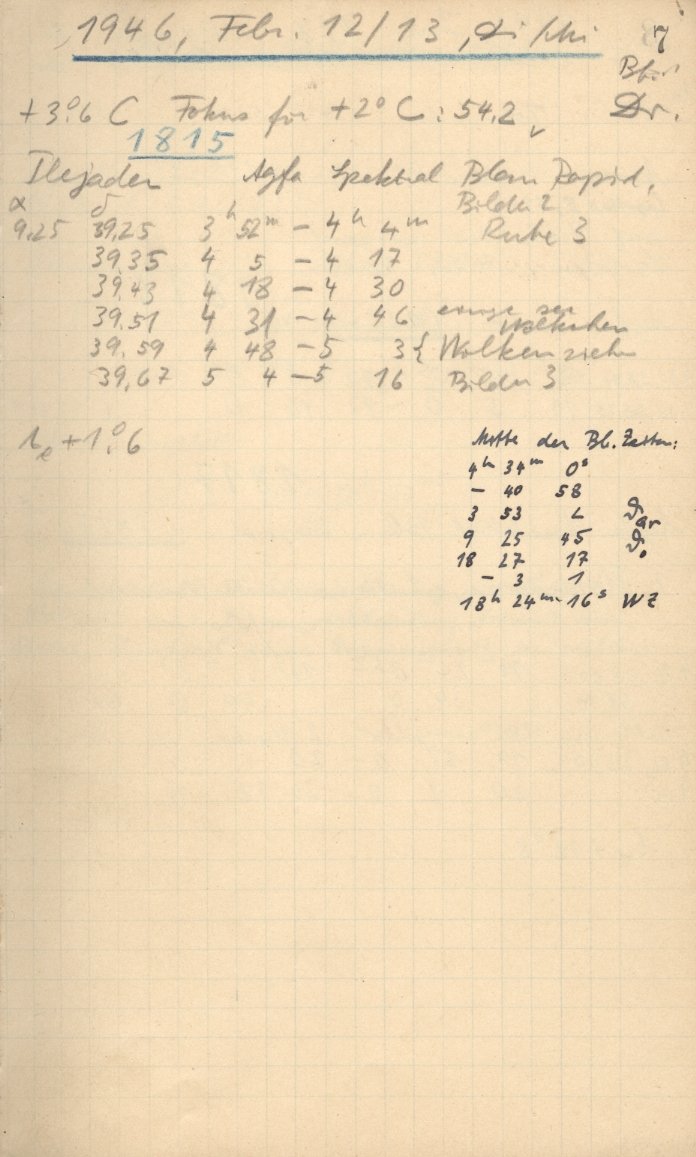 1946, Febr. 12/13, Di/Mi 7
Bb.:
+3°.6 C Fokus für +2° C: 54,2 Dr.
1815
Plejaden Agfa Spektral Blau Rapid,
α δ Bilder 2
9,25 39,25 3h 52m – 4h 4m Ruhe 3
39,35 4 5 – 4 17
39,43 4 18 – 4 30
39,51 4 31 – 4 46 einige Wölkchen
39,59 4 48 – 5 3 { Wolken ziehen
39,67 5 4 – 5 16 Bilder 3
+1°.6
Mitte der Bb. Zeiten:
4h 34m 0s
– 40 58
3 53 2
9 25 45
18 27 17
– 3 1
18h 24m 16s WZ